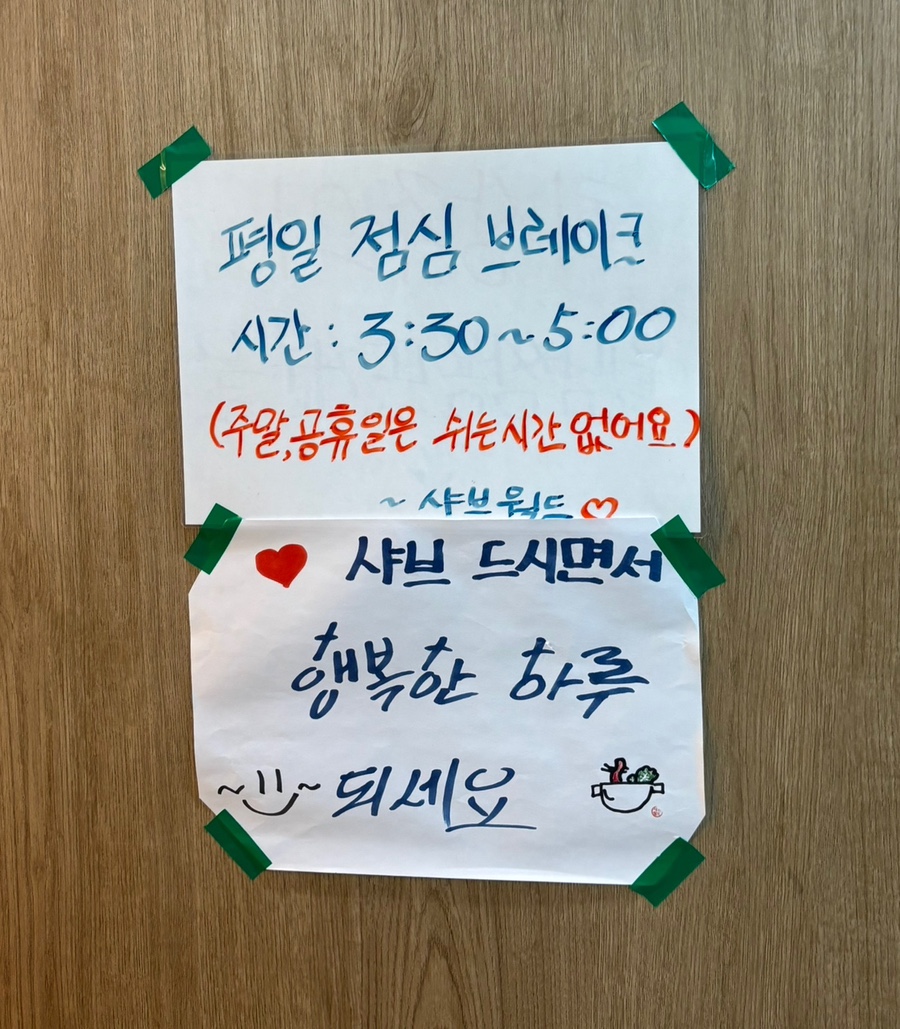 평일 점심 브레이크
시간 : 3:30~5:00
(주말,공휴일은 쉬는시간 없어요)
~ 샤브웤드♡
♥ 샤브 드시면서
행복한 하루
되세요